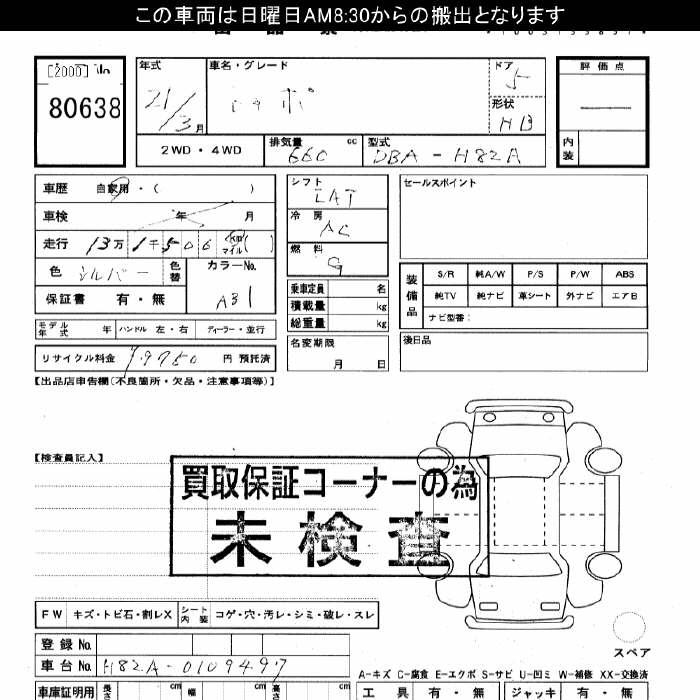 この車両は日曜日AM8:30からの搬出となります
[2000] No
80638
年式 21/3月
車名・グレード トッポ
ドア 5
形状 HB
評価点
内装
2WD・4WD
排気量 660 cc
型式 DBA-H82A
車歴 自家用・( )
車検 年 月
走行 13万1千506 (km マイル)
色 シルバー 色替
カラーNo. A31
保証書 有・無
シフト LAT
冷房 AC
燃料 G
乗車定員 名
積載量 kg
総重量 kg
名変期限 月 日
セールスポイント
装備品
S/R 純A/W P/S P/W ABS
純TV 純ナビ 革シート 外ナビ エアB
ナビ型番:
後日品
モデル年式 年 ハンドル 左・右 ディーラー・並行
リサイクル料金 円 預託済
【出品店申告欄(不良箇所・欠品・注意事項等)】
【検査員記入】
買取保証コーナーの為
未検査
FW キズ・トビ石・割レX シート内装 コゲ・穴・汚レ・シミ・破レ・スレ
スペア
登録No.
車台No. H82A-0109497
A-キズ C-腐食 E-エクボ S-サビ U-凹ミ W-補修 XX-交換済
車庫証明用 長さ cm 幅 cm 高さ cm
工具 有・無 ジャッキ 有・無